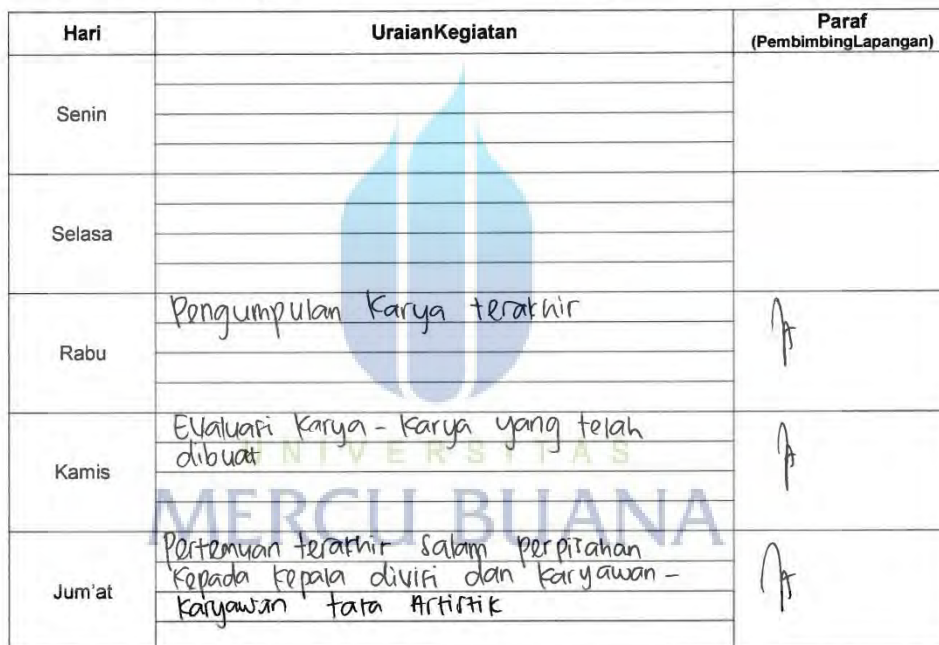 Hari UraianKegiatan Paraf
(PembimbingLapangan)
Senin
Selasa
Rabu
Pengumpulan karya terakhir
Kamis
Evaluasi karya - karya yang telah
dibuat
UNIVERSITAS
MERCU BUANA
Jum'at
Pertemuan terakhir salam perpisahan
kepada kepala divisi dan karyawan -
karyawan tata Artistik